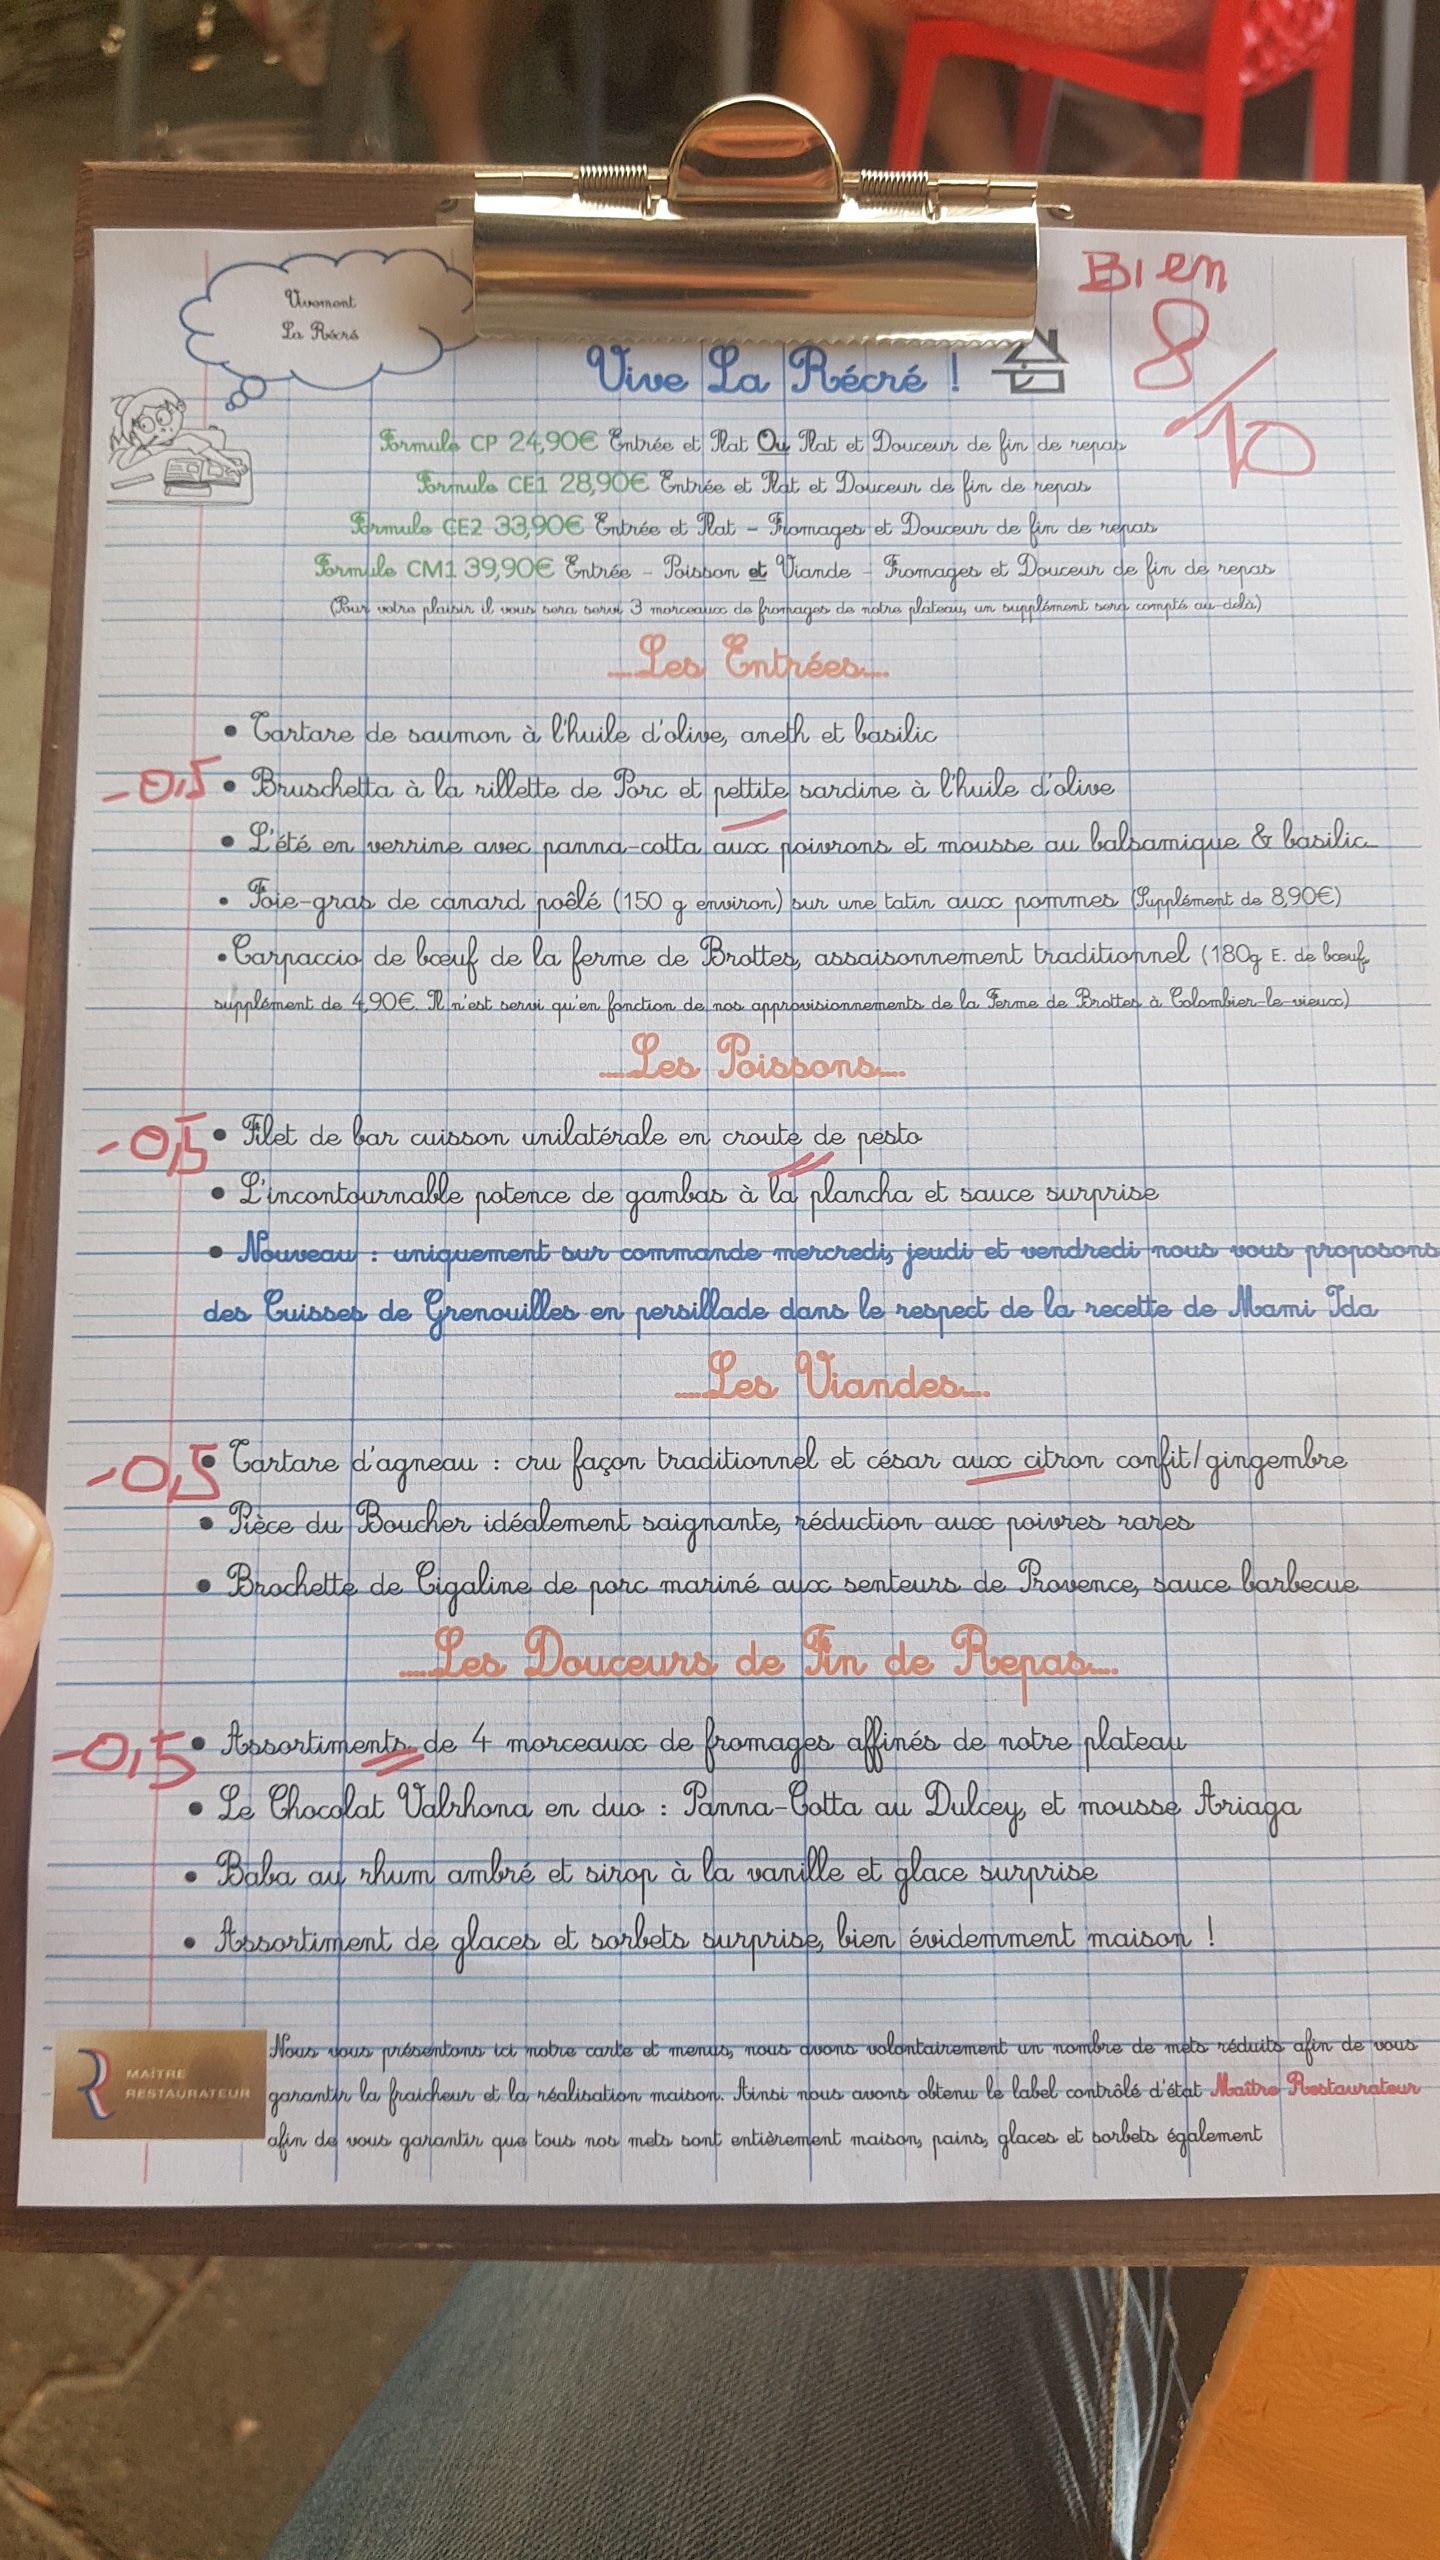 Vivement
La Récré
Bien
8/10
Vive La Récré !
Formule CP 24,90€ Entrée et Plat Ou Plat et Douceur de fin de repas
Formule CE1 28,90€ Entrée et Plat et Douceur de fin de repas
Formule CE2 33,90€ Entrée et Plat - Fromages et Douceur de fin de repas
Formule CM1 39,90€ Entrée - Poisson et Viande - Fromages et Douceur de fin de repas
(Pour votre plaisir il vous sera servi 3 morceaux de fromages de notre plateau, un supplément sera compté au-delà)
....Les Entrées....
• Tartare de saumon à l'huile d'olive, aneth et basilic
-0,5 • Bruschetta à la rillette de Porc et pettite sardine à l'huile d'olive
• L'été en verrine avec panna-cotta aux poivrons et mousse au balsamique & basilic
• Foie-gras de canard poêlé (150 g environ) sur une tatin aux pommes (Supplément de 8,90€)
• Carpaccio de bœuf de la ferme de Brottes, assaisonnement traditionnel (180g E. de bœuf,
supplément de 4,90€. Il n'est servi qu'en fonction de nos approvisionnements de la Ferme de Brottes à Colombier-le-vieux)
....Les Poissons....
-0,5 • Filet de bar cuisson unilatérale en croute de pesto
• L'incontournable potence de gambas à la plancha et sauce surprise
• Nouveau : uniquement sur commande mercredi, jeudi et vendredi nous vous proposons
des Cuisses de Grenouilles en persillade dans le respect de la recette de Mami Ida
....Les Viandes....
-0,5 • Tartare d'agneau : cru façon traditionnel et césar aux citron confit/gingembre
• Pièce du Boucher idéalement saignante, réduction aux poivres rares
• Brochette de Cigaline de porc mariné aux senteurs de Provence, sauce barbecue
....Les Douceurs de Fin de Repas....
-0,5 • Assortiments de 4 morceaux de fromages affinés de notre plateau
• Le Chocolat Valrhona en duo : Panna-Cotta au Dulcey, et mousse Ariaga
• Baba au rhum ambré et sirop à la vanille et glace surprise
• Assortiment de glaces et sorbets surprise, bien évidemment maison !
MAÎTRE
RESTAURATEUR
Nous vous présentons ici notre carte et menus, nous avons volontairement un nombre de mets réduits afin de vous
garantir la fraicheur et la réalisation maison. Ainsi nous avons obtenu le label contrôlé d'état Maître Restaurateur
afin de vous garantir que tous nos mets sont entièrement maison, pains, glaces et sorbets également